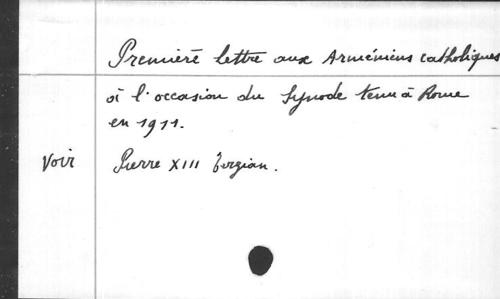 Première lettre aux Arméniens catholiques
à l'occasion du Synode tenu à Rome
en 1911.
Voir Pierre XIII Terzian.